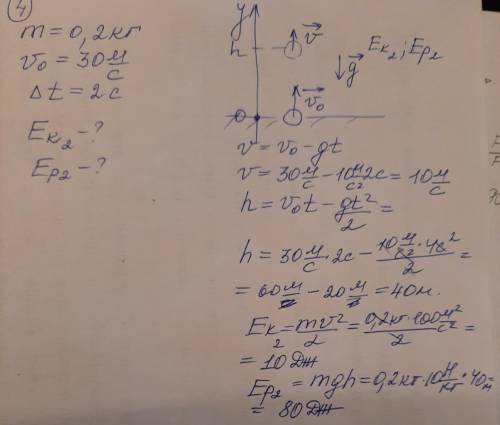 4
m = 0,2 кг
v₀ = 30 м/с
Δt = 2 с
Eк₂ - ?
Eр₂ - ?
y
h
v⃗
Eк₂; Eр₂
g⃗
0
v⃗₀
v = v₀ - gt
v = 30 м/с - 10 м/с² 2с = 10 м/с
h = v₀t - gt²/2 =
h = 30 м/с · 2с - 10 м/с² · 4с²/2 =
= 60 м - 20 м = 40 м.
Eк₂ = mv²/2 = 0,2 кг · 100 м²/с²/2 =
= 10 Дж
Eр₂ = mgh = 0,2 кг · 10 Н/кг · 40 м =
= 80 Дж